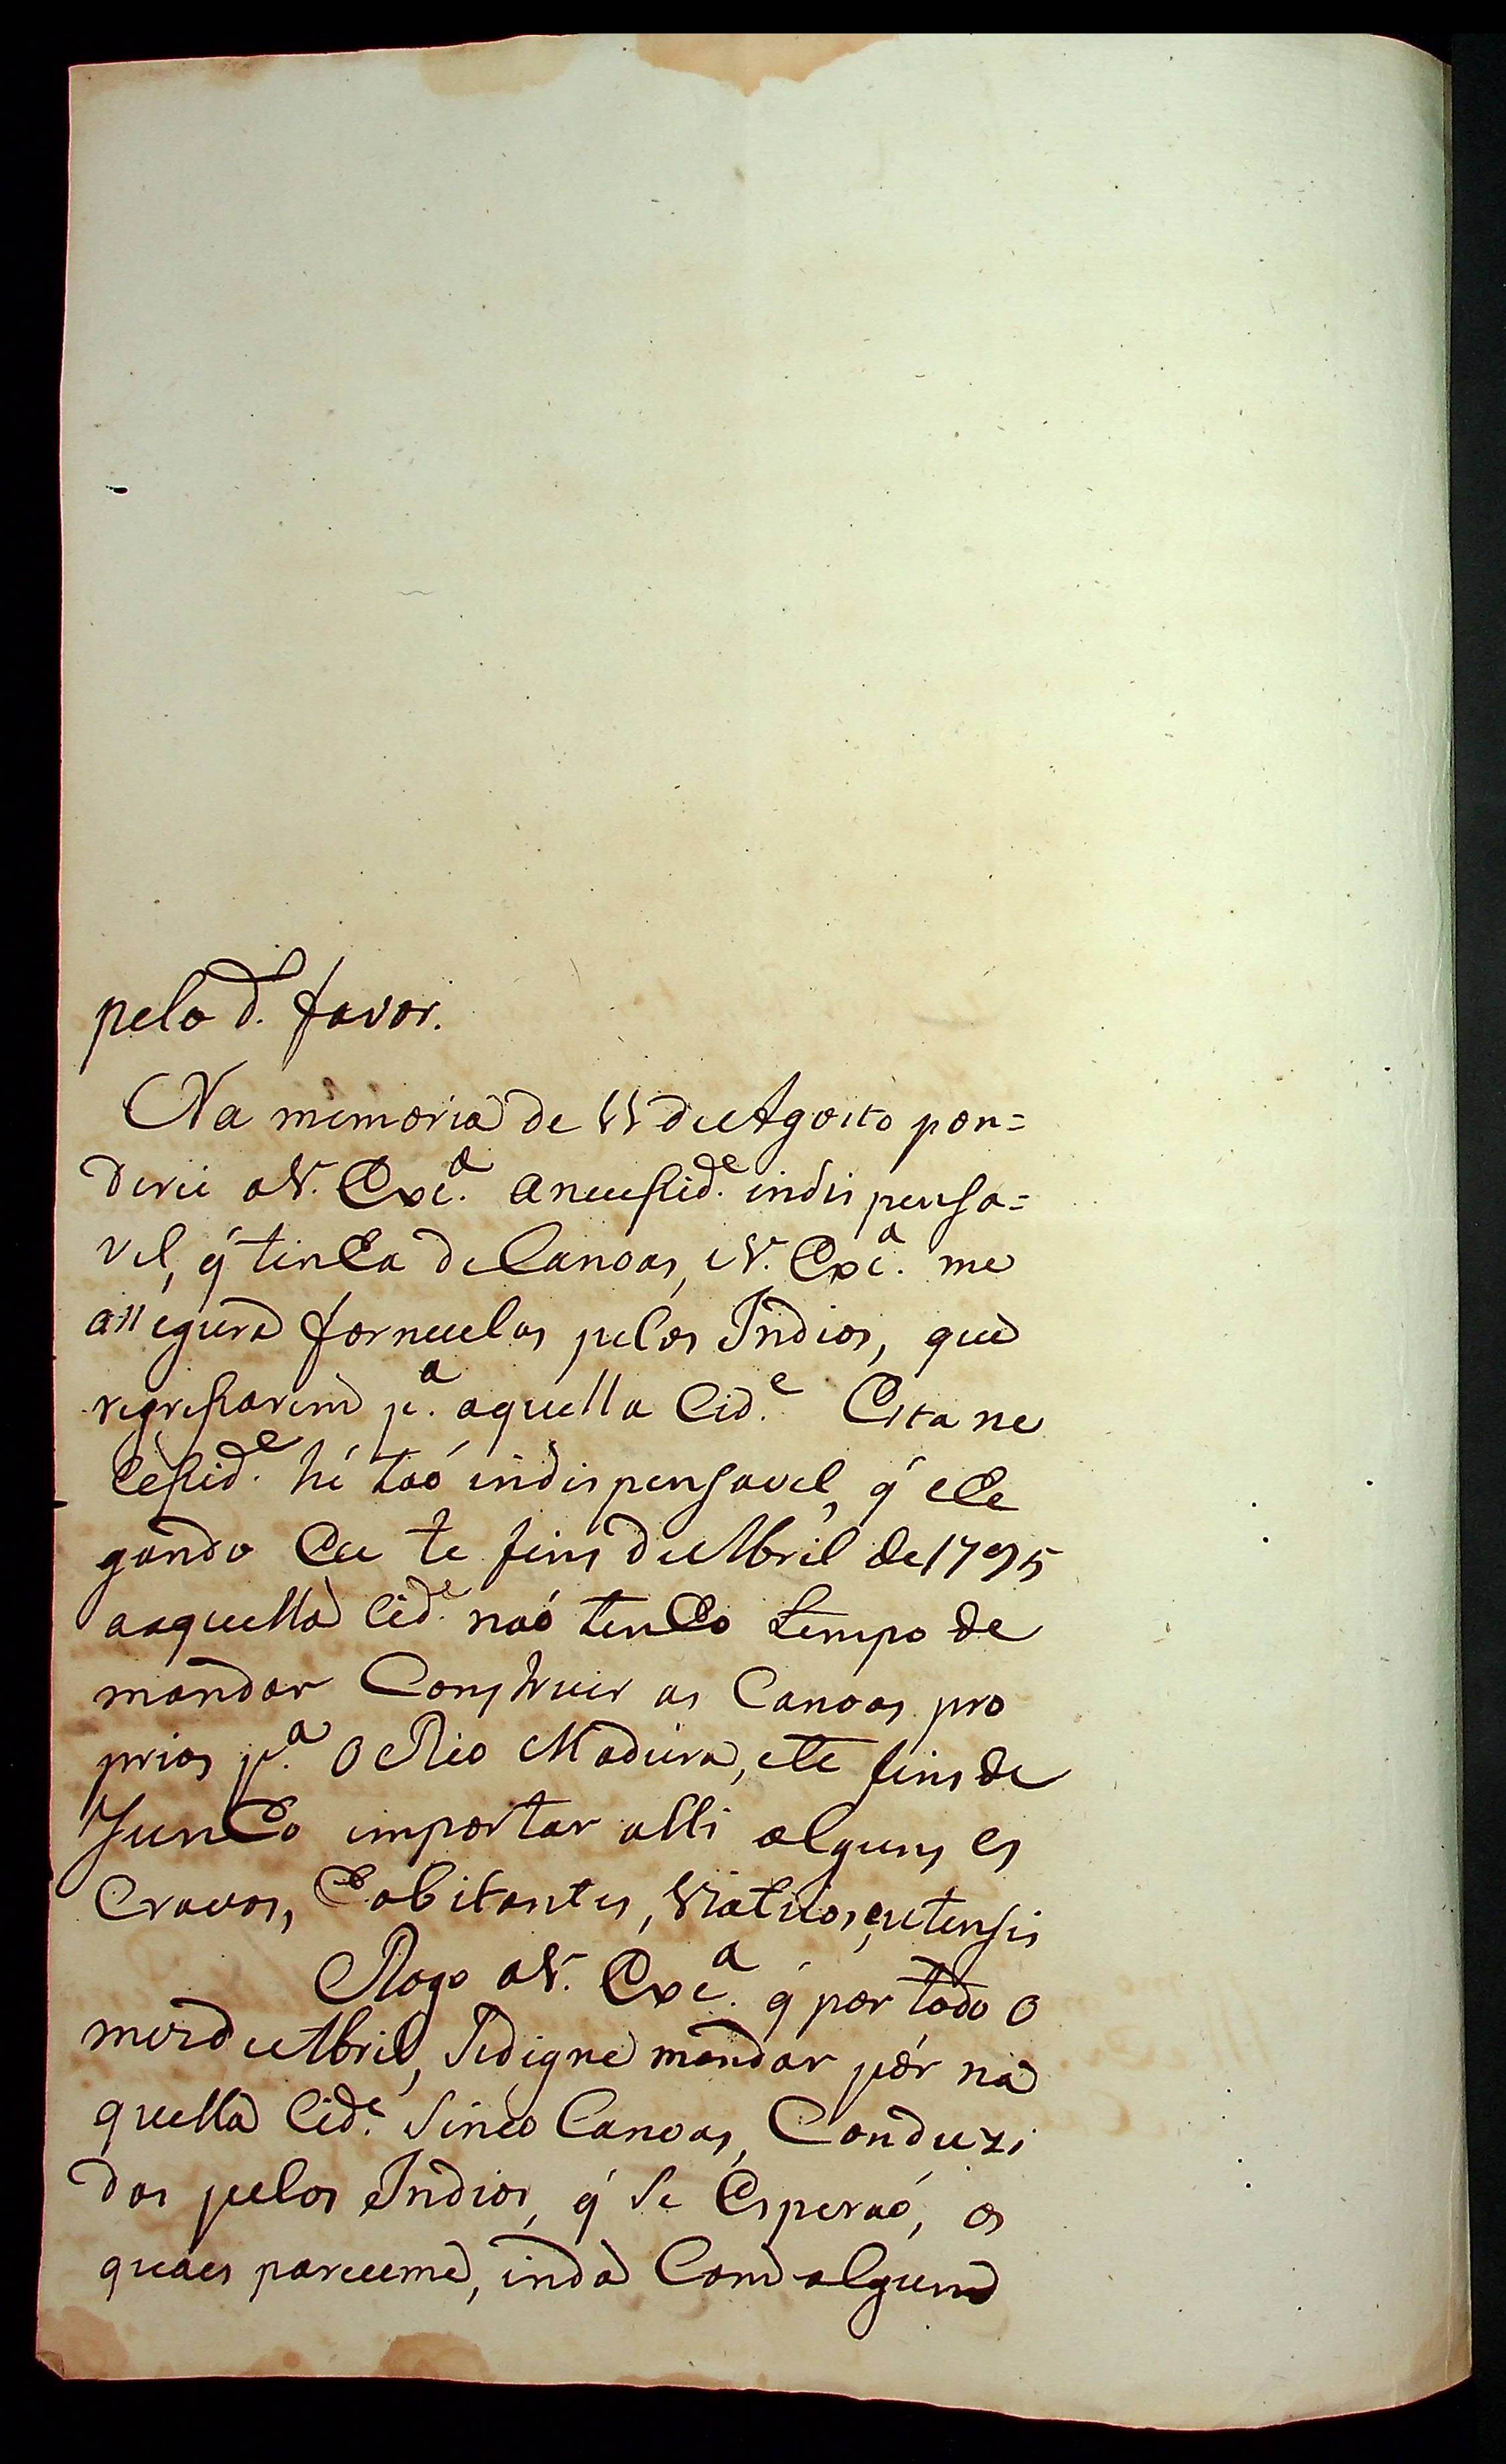 pelo d.º favor.
Na memoria de 11 de Agosto pon=
derei a V. Exc.ª a necessid.e indispensa=
vel, q̃ tinha de Canoas, e V. Exc.ª me
assegura fornecelas pelos Indios, que
regressarem p.ª aquella Cid.e Esta ne
cessid.e hé taó indispensavel, q̃ che
gando eu te fins de Abril de 1795
aaquella Cid.e naó tenho tempo de
mandar Construir as Canoas pro
prias p.ª o Rio Madeira, e te fins de
Junho importar alli alguns es
cravos, habitantes, viativos, e utensis
Rogo a V. Exc.ª q̃ por todo o
mez de Abril, Se digne mandar pôr na
quella Cid.e Sinco Canoas, Conduzi
das pelos Indios, q̃ Se esperaó, os
quaes pareceme, inda Com algum